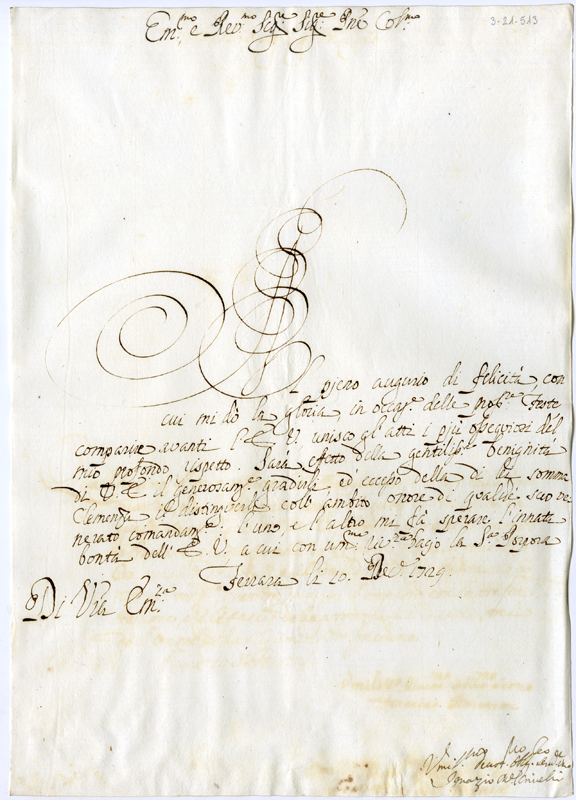 3-21-513
Em.mo e Rev.mo Sig.re Sig.re Pne Col.mo
Il pieno augurio di felicità, con
cui mi dò la gloria in occas.e delle pros.e Feste
comparire avanti l'E. V. unisco gl'atti i più ossequiosi del
mio profondo rispetto. Sarà effetto della gentiliss.a benignità
di V. E. il generosam.e gradirli, ed eccesso della di lei somma
Clemenza il distinguerli coll' ambito onore di qualche suo ve
nerato comandam.o l'uno, e l'altro mi fà sperare l'innata
bontà dell' E. V. a cui con um.ma bacio la S.a Porpora
Ferrara li 20. Dec.e 1729.
Di V̄ra Em.za
Ignazio